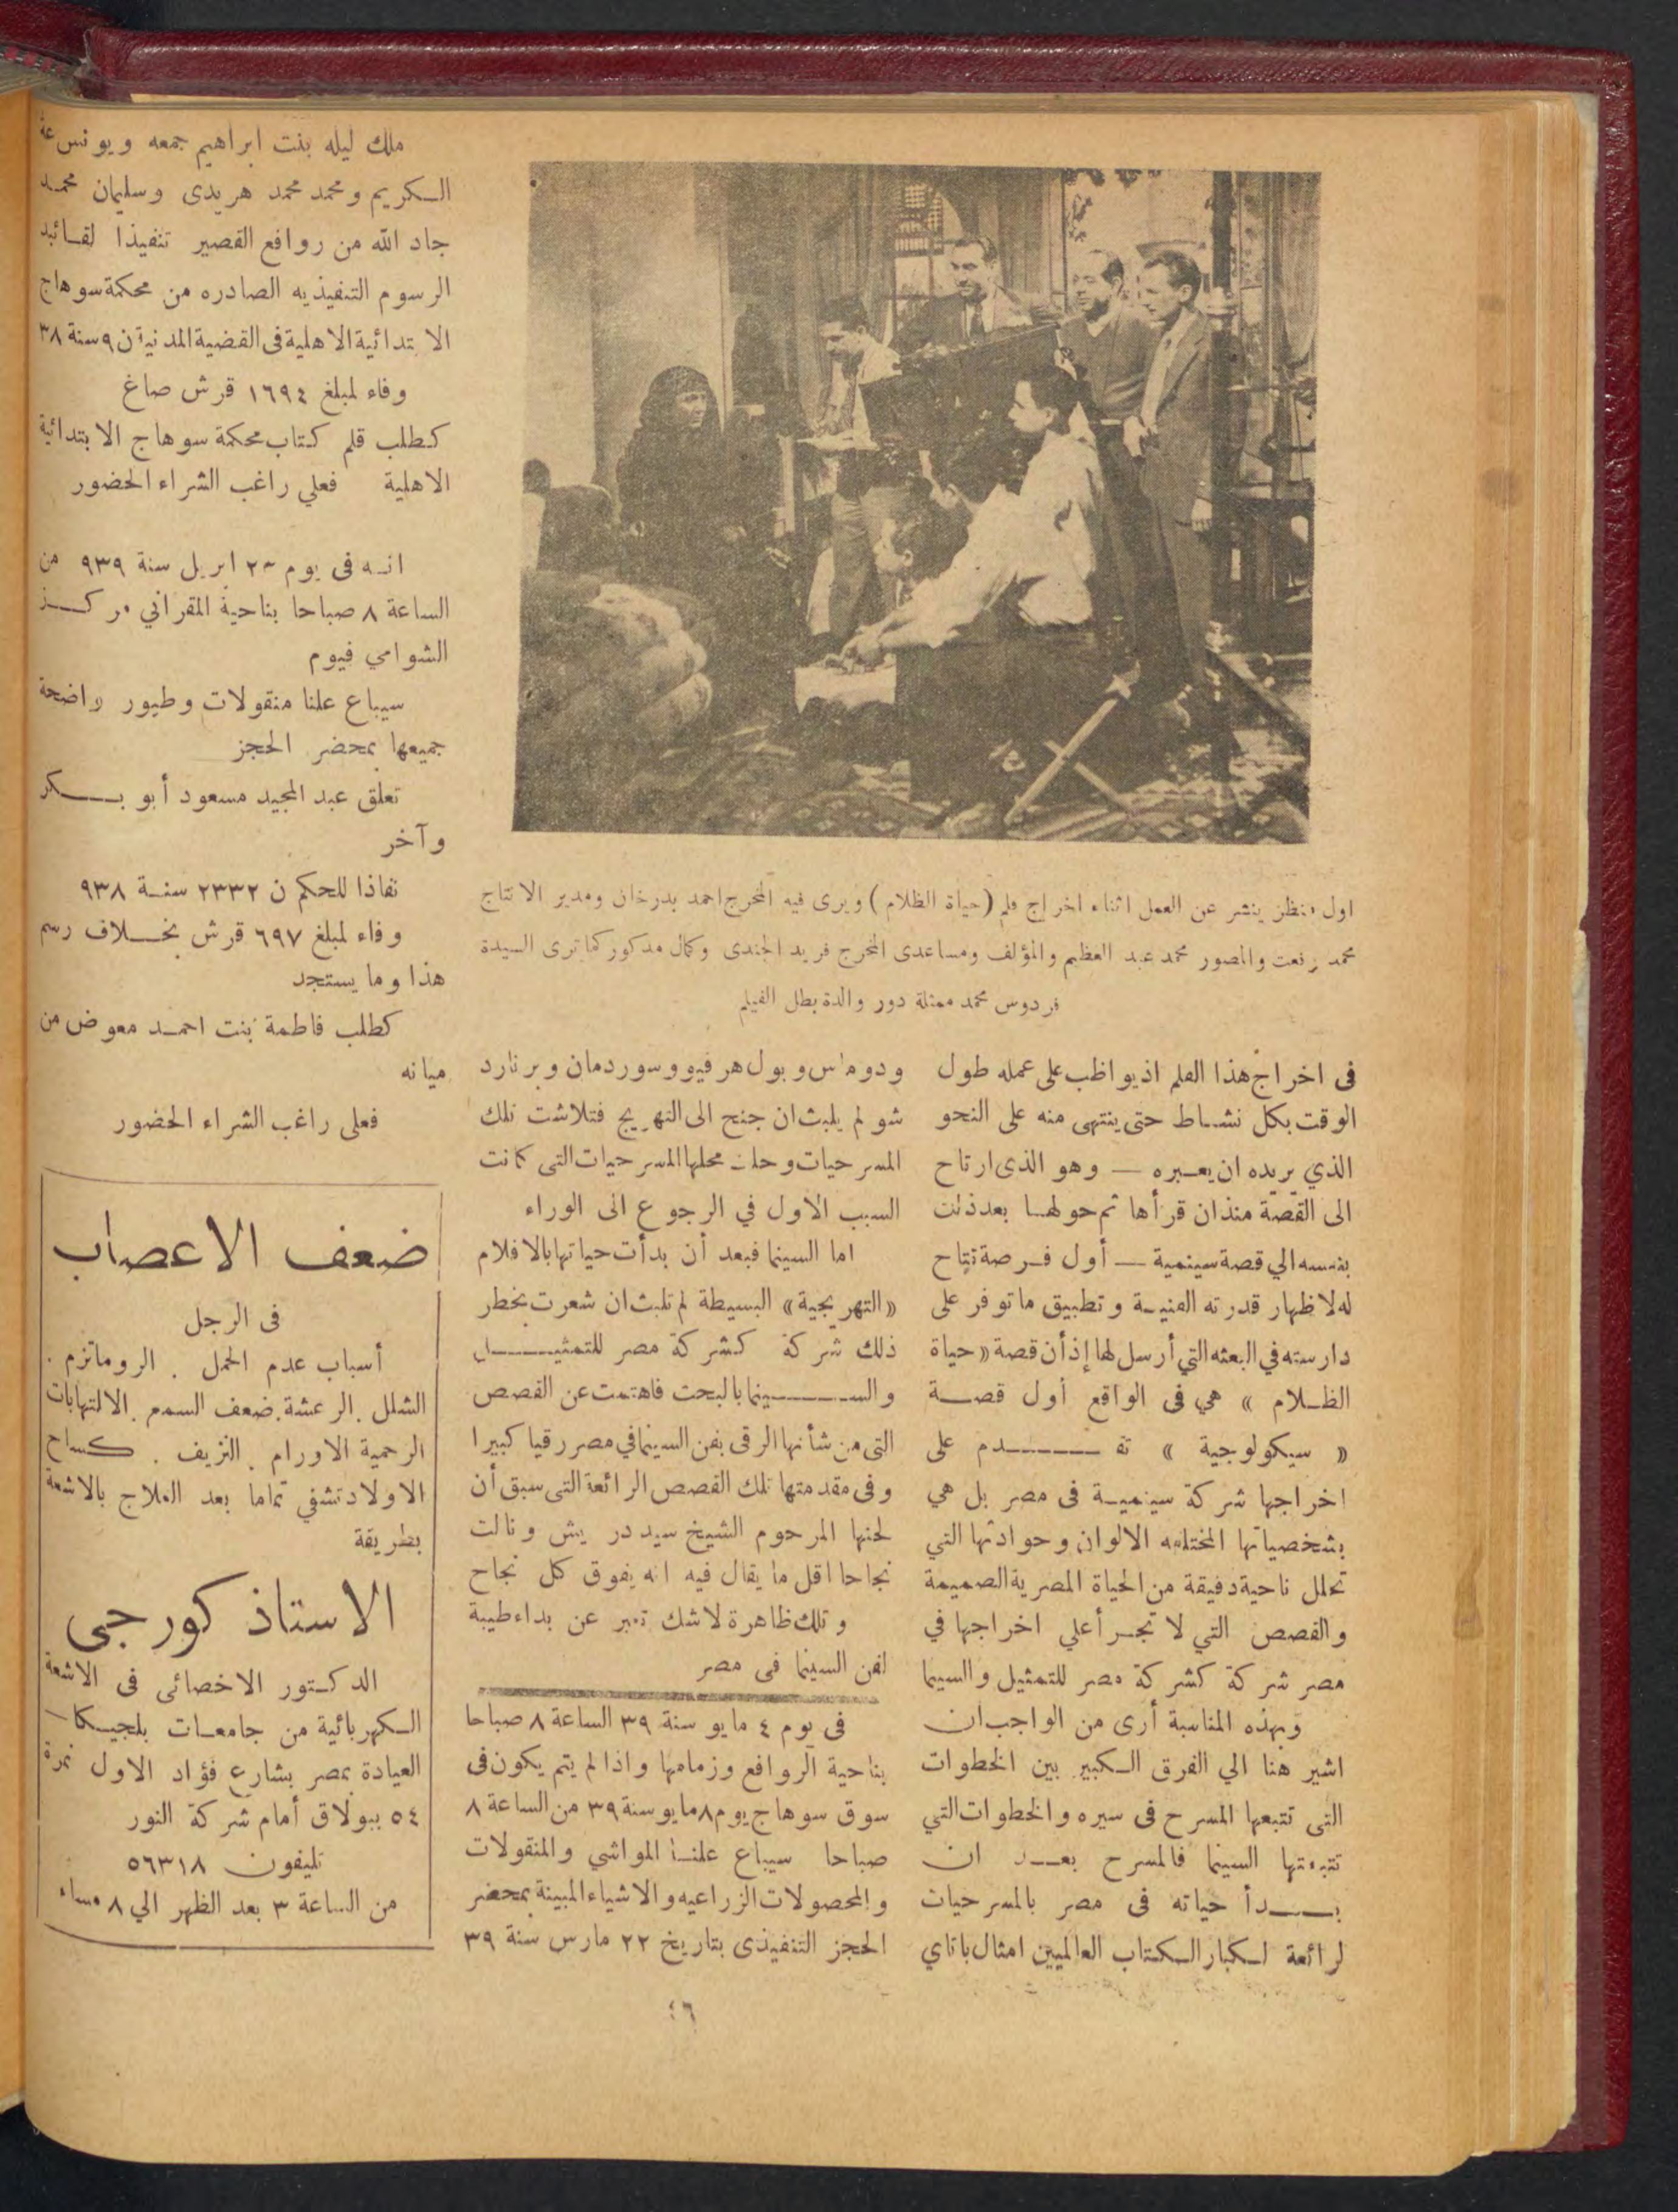 اول منظر ينشر عن العمل اثناء اخراج فلم (حياة الظلام) ويرى فيه المخرج احمد بدرخان ومدير الانتاج
محمد رفعت والمصور محمد عبد العظيم والمؤلف ومساعدى المخرج فريد الجندى وكمال مدكور كما ترى السيدة
فردوس محمد ممثلة دور والدة بطل الفيلم
فى اخراج هذا الفلم اذ يواظب على عمله طول
الوقت بكل نشاط حتى ينتهى منه على النحو
الذي يريده ان يعبره — وهو الذى ارتاح
الى القصة منذ ان قرأها ثم حولها بعد ذلك
بنفسه الي قصة سينمية — أول فرصة تتاح
له لاظهار قدرته الفنية وتطبيق ما توفر على
دارسته في البعثه التي أرسل لها إذ أن قصة «حياة
الظلام» هي فى الواقع أول قصة
«سيكولوجية» تقدم على
اخراجها شركة سينمية فى مصر بل هي
بشخصياتها المختلفه الالوان وحوادثها التي
تحلل ناحية دقيقة من الحياة المصرية الصميمة
والقصص التي لا تجرأ علي اخراجها في
مصر شركة كشركة مصر للتمثيل والسيما
وبهذه المناسبة أرى من الواجب ان
اشير هنا الي الفرق الكبير بين الخطوات
التى تتبعها المسرح فى سيره والخطوات التي
تتبعتها السينما فالمسرح بعد ان
بدأ حياته فى مصر بالمسرحيات
لرائعة لكبار الكتاب العالميين امثال باناي
ودوماس وبول هرفيو وسوردمان وبرنارد
شو لم يلبث ان جنح الى التهريج فتلاشت تلك
المسرحيات وحلت محلها المسرحيات التى كانت
السبب الاول في الرجوع الى الوراء
اما السينما فبعد أن بدأت حياتها بالافلام
«التهريجية» البسيطة لم تلبث ان شعرت بخطر
ذلك شركة كشركة مصر للتمثيل
والسينما بالبحث فاهتمت عن القصص
التى من شأنها الرقى بفن السينما في مصر رقيا كبيرا
وفى مقدمتها تلك القصص الرائعة التى سبق أن
لحنها المرحوم الشيخ سيد درويش ونالت
نجاحا اقل ما يقال فيه انه يفوق كل نجاح
وتلك ظاهرة لا شك تعبر عن بداء طيبة
لفن السينما فى مصر
فى يوم ٤ مايو سنة ٣٩ الساعة ٨ صباحا
بناحية الروافع وزمامها واذا لم يتم يكون فى
سوق سوهاج يوم ٨ مايو سنة ٣٩ من الساعة ٨
صباحا سيباع علنا المواشي والمنقولات
والمحصولات الزراعيه والاشياء المبينة بمحضر
الحجز التنفيذى بتاريخ ٢٢ مارس سنة ٣٩
ملك ليله بنت ابراهيم جمعه ويونس
الكريم ومحمد محمد هريدى وسليمان محمد
جاد الله من روافع القصير تنفيذا لقائبد
الرسوم التنفيذيه الصادره من محكمة سوهاج
الابتدائية الاهلية فى القضية المدنية ن ٩ سنة ٣٨
وفاء لمبلغ ١٦٩٤ قرش صاغ
كطلب قلم كتاب محكمة سوهاج الابتدائية
الاهلية فعلي راغب الشراء الحضور
انه فى يوم ابريل سنة ٩٣٩ من
الساعة ٨ صباحا بناحية المقراني مركز
الشوامي فيوم
سيباع علنا منقولات وطيور واضحة
جميعها بمحضر الحجز
تعلق عبد المجيد مسعود أبو بكر
وآخر
نفاذا للحكم ن ٢٣٣٢ سنة ٩٣٨
وفاء لمبلغ ٦٩٧ قرش بخلاف رسم
هذا وما يستجد
كطلب فاطمة بنت احمد معوض من
ميانه
فعلى راغب الشراء الحضور
ضعف الاعصاب
فى الرجل
أسباب عدم الحمل . الروماتزم .
الشلل . الرعشة . ضعف السمع . الالتهابات
الرحمية الاورام . النزيف . كساح
الاولاد تشفي تماما بعد العلاج بالاشعة
بطريقة
الاستاذ كورجى
الدكتور الاخصائى فى الاشعة
الكهربائية من جامعات بلجيكا —
العيادة بمصر بشارع فؤاد الاول نمرة
٥٤ ببولاق أمام شركة النور
تليفون ٥٦٣١٨
من الساعة ٣ بعد الظهر الي ٨ مساء
٤٦